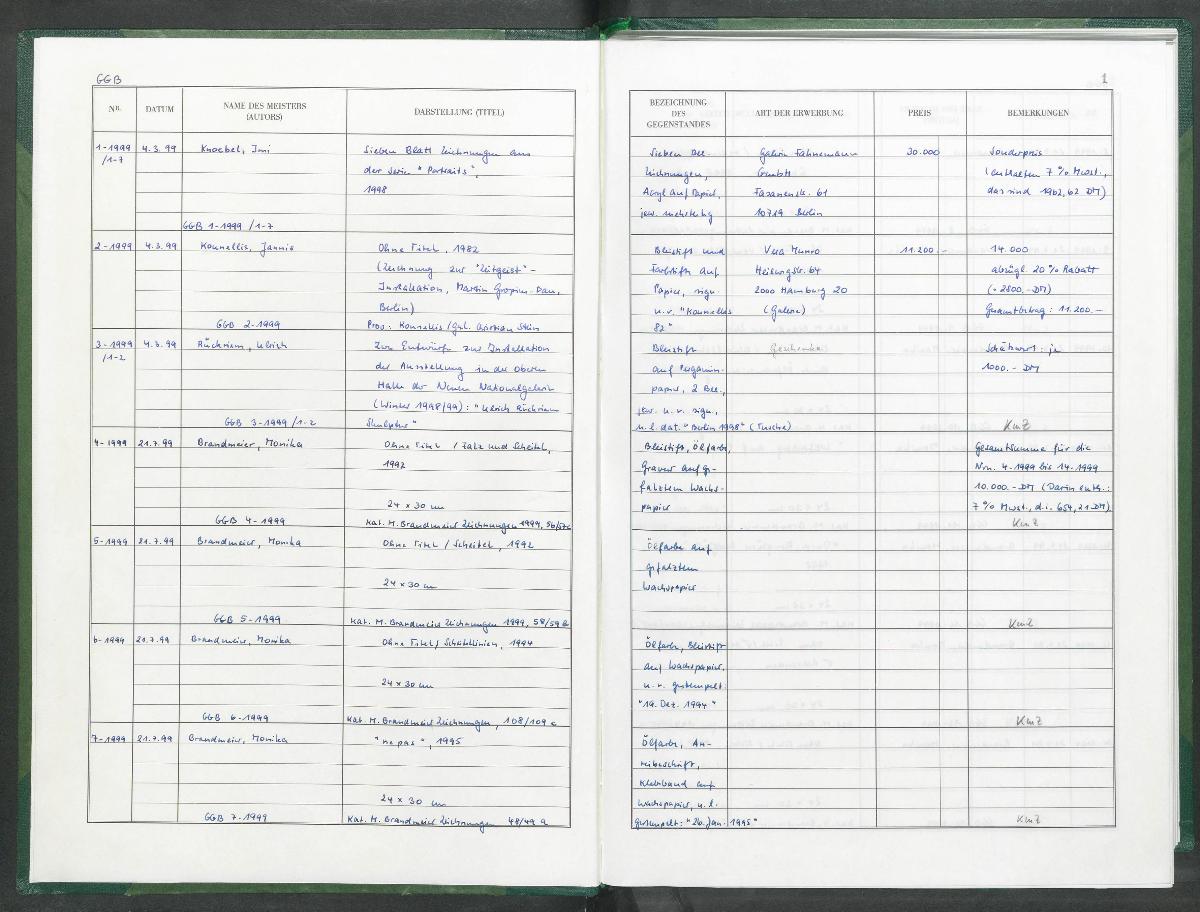 GGB
1
NR.
DATUM
NAME DES MEISTERS
(AUTORS)
DARSTELLUNG (TITEL)
BEZEICHNUNG
DES
GEGENSTANDES
ART DER ERWERBUNG
PREIS
BEMERKUNGEN
1-1999
/1-7
4.3.99
Knoebel, Imi
Sieben Blatt Zeichnungen aus
der Serie "Portraits",
1998
GGB 1-1999/1-7
Sieben
Zeichnungen,
Acryl auf Papier,
jew. mehrteilig
Galerie Fahnemann
GmbH
Fasanenstr. 61
10719 Berlin
30.000
Sonderpreis
(enthalten 7 % Mwst.,
das sind 1962,62 DM)
2-1999
4.3.99
Kounellis, Jannis
Ohne Titel, 1982
(Zeichnung zur "Zeitgeist"-
Installation, Martin Gropius-Bau,
Berlin)
GGB 2-1999
Prov.: Kounellis / Christian Stein
Bleistift und
Farbstift auf
Papier, sign.
u.r. "Kounellis
82"
Vera Munro
Heilwigstr. 64
2000 Hamburg 20
(Galerie)
11.200.-
14.000
abzügl. 20 % Rabatt
(= 2800.-DM)
Gesamtbetrag: 11.200.-
3-1999
/1-2
4.3.99
Rückriem, Ulrich
Zwei Entwürfe zur Installation
der Ausstellung in der oberen
Halle der Neuen Nationalgalerie
(Winter 1998/99): "Ulrich Rückriem
Skulptur"
GGB 3-1999/1-2
Bleistift
auf Pergamin-
papier, 2 Bll.,
jew. u.r. sign.,
u.l. dat. "Berlin 1998" (Tusche)
Geschenk
Schätzwert: je
1000.- DM
KmZ
4-1999
21.7.99
Brandmeier, Monika
Ohne Titel / Falz und Scheitel,
1992
24 x 30 cm
GGB 4-1999
Kat. M. Brandmeier Zeichnungen 1999, 56/57c
Bleistift, Ölfarbe,
Gravur auf ge-
falztem Wachs-
papier
Gesamtsumme für die
Nrn. 4-1999 bis 14-1999
10.000.-DM (Darin enth.:
7 % Mwst., d.i. 654,21 DM)
KmZ
5-1999
21.7.99
Brandmeier, Monika
Ohne Titel / Scheitel, 1992
24 x 30 cm
GGB 5-1999
Kat. M. Brandmeier Zeichnungen 1999, 58/59
Ölfarbe auf
gefalztem
Wachspapier
KmZ
6-1999
21.7.99
Brandmeier, Monika
Ohne Titel / Scheitellinien, 1994
24 x 30 cm
GGB 6-1999
Kat. M. Brandmeier Zeichnungen, 108/109 c
Ölfarbe, Bleistift
auf Wachspapier,
u.r. gestempelt:
"19. Dez. 1994"
KmZ
7-1999
21.7.99
Brandmeier, Monika
"ne pas", 1995
24 x 30 cm
GGB 7-1999
Kat. M. Brandmeier Zeichnungen 48/49 a
Ölfarbe, An-
reibeschrift,
Klebband auf
Wachspapier, u.l.
gestempelt: "26. Jan. 1995"
KmZ